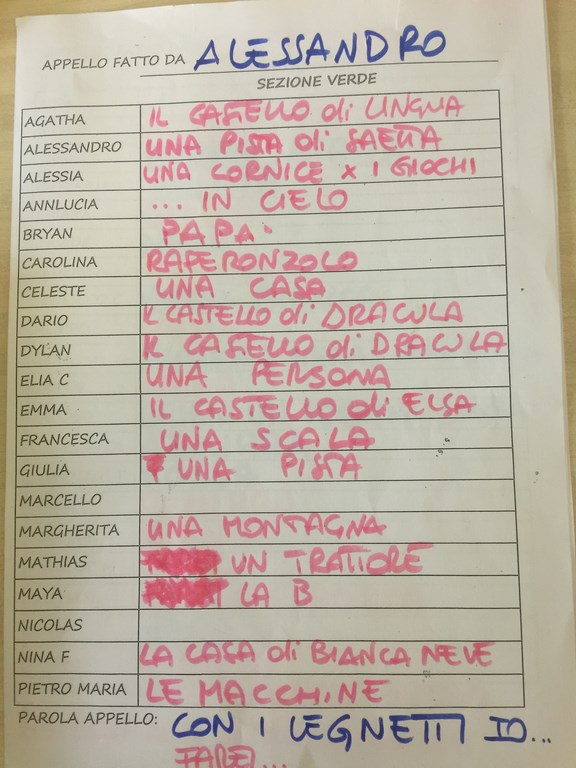 APPELLO FATTO DA ALESSANDRO
SEZIONE VERDE
AGATHA IL CASTELLO di LINGUA
ALESSANDRO UNA PISTA di SAETTA
ALESSIA UNA CORNICE x I GIOCHI
ANNLUCIA ... IN CIELO
BRYAN PAPA'
CAROLINA RAPERONZOLO
CELESTE UNA CASA
DARIO IL CASTELLO di DRACULA
DYLAN IL CASTELLO di DRACULA
ELIA C UNA PERSONA
EMMA IL CASTELLO di ELSA
FRANCESCA UNA SCALA
GIULIA UNA PISTA
MARCELLO
MARGHERITA UNA MONTAGNA
MATHIAS UN TRATTORE
MAYA LA B
NICOLAS
NINA F LA CASA di BIANCA NEVE
PIETRO MARIA LE MACCHINE
PAROLA APPELLO: CON I LEGNETTI IO...
FAREI...